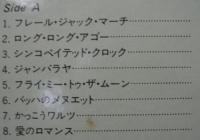 Side A
1. フレール・ジャック・マーチ
2. ロング・ロング・アゴー
3. シンコペイテッド・クロック
4. ジャンバラヤ
5. フライ・ミー・トゥ・ザ・ムーン
6. バッハのメヌエット
7. かっこうワルツ
8. 愛のロマンス